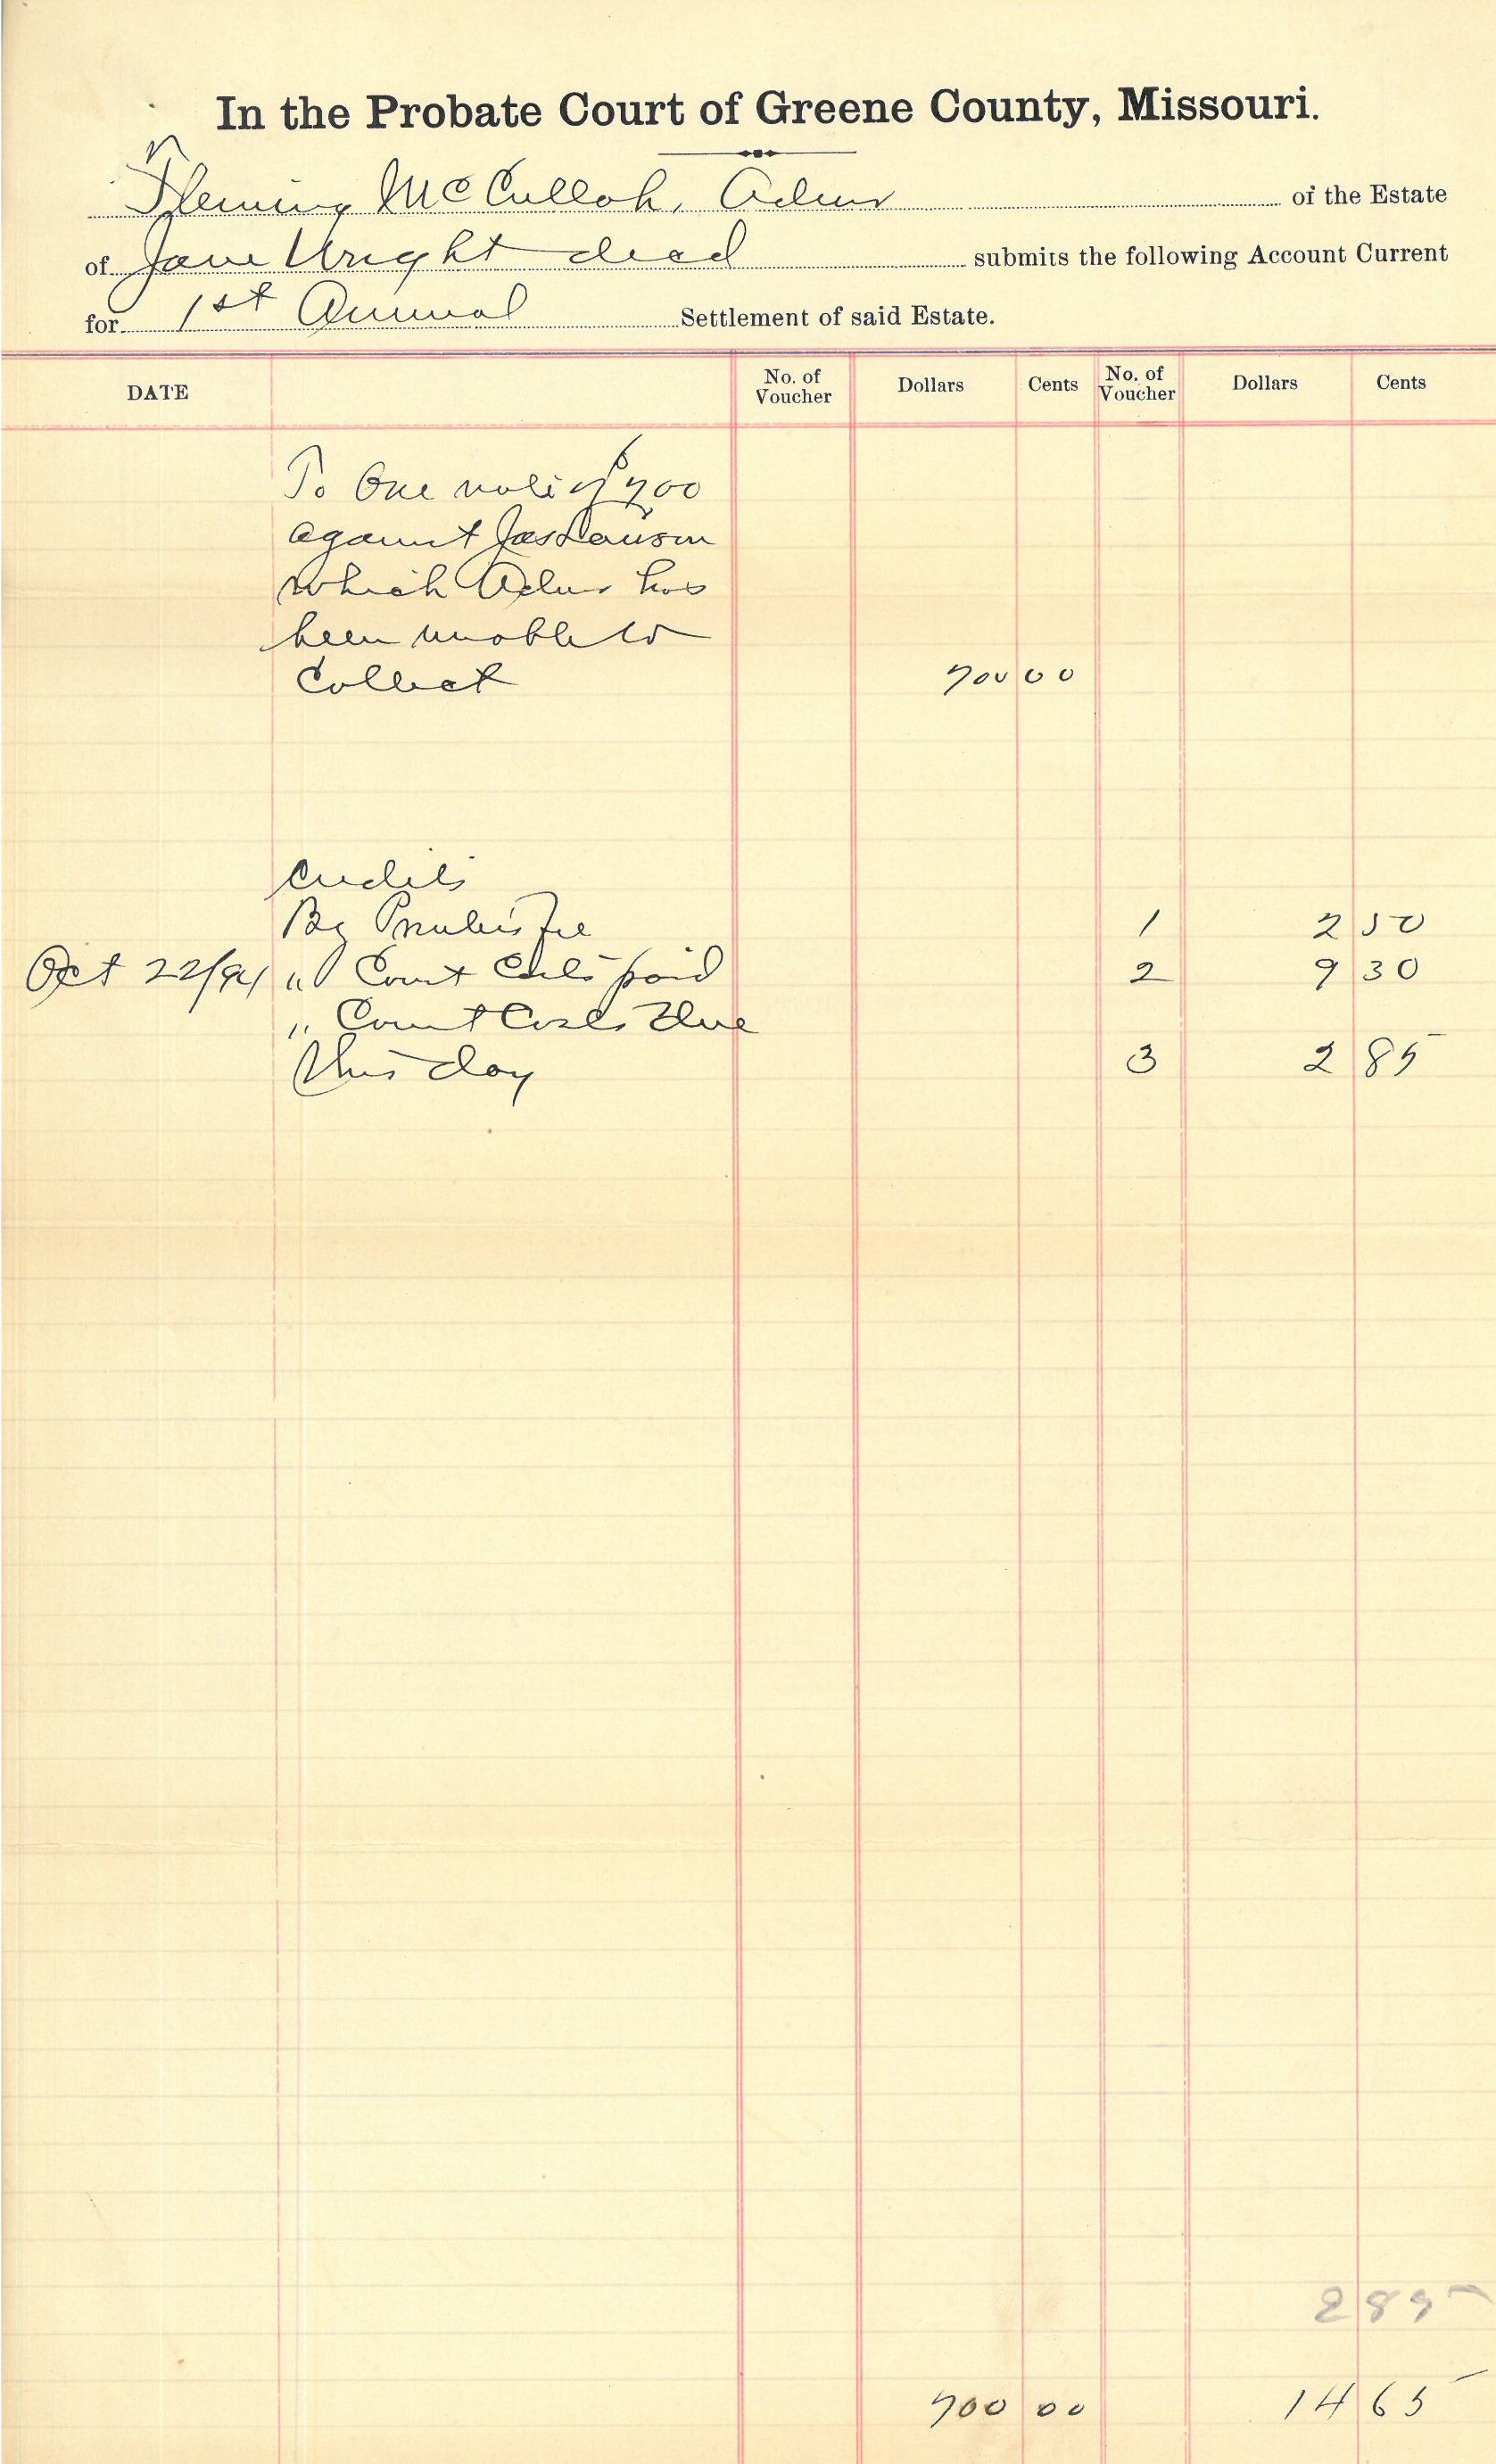 In the Probate Court of Greene County, Missouri.
Fleming McCulloh, Admr of the Estate
of Jane Wright decd submits the following Account Current
for 1st Annual Settlement of said Estate.
DATE No. of Voucher Dollars Cents No. of Voucher Dollars Cents
To One note of $700
against Jas Lawson
which Admr has
been unable to
Collect 700 00
Credits
By Printers fee 1 2 50
Oct 22/94 " Court Costs paid 2 9 30
" Court Costs Due
this day 3 2 85
2 85
700 00 14 65